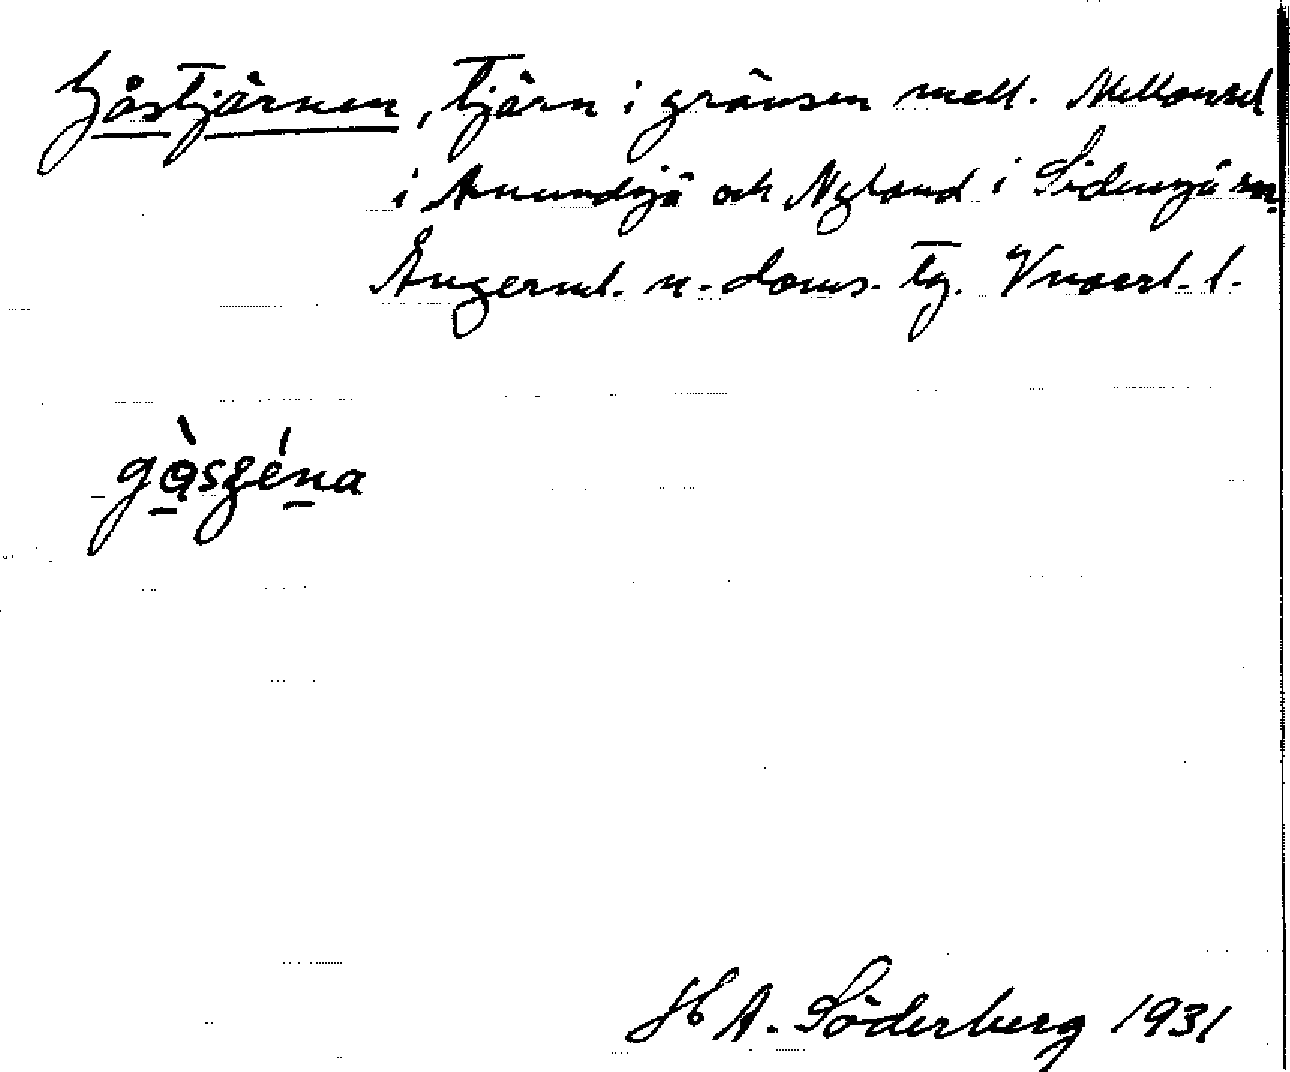 Gåstjärnen, tjärn i gränsen mell. Mellansel
i Anundsjö och Nyland i Sidensjö sn.
Ångerml. n. doms. tg. Vnorrl. l.
gåsʒéna
H A. Söderberg 1931